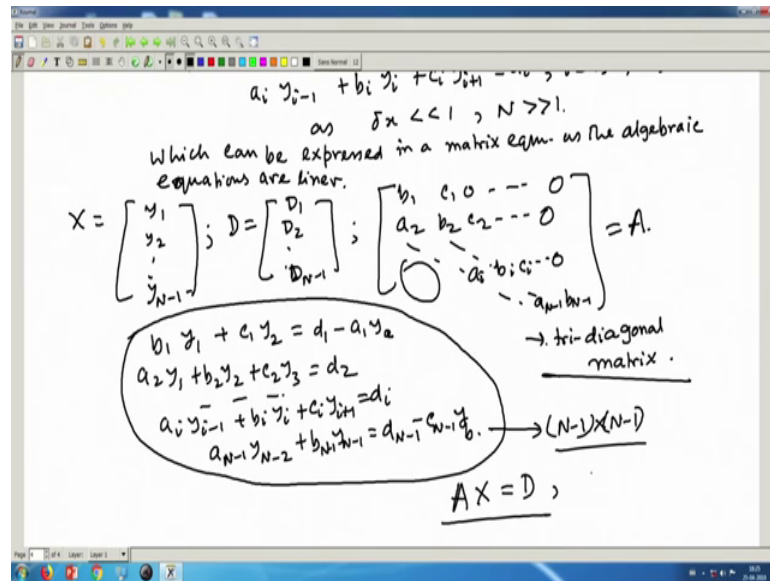 Journal
File Edit View Journal Tools Options Help
Sans Normal 12
aᵢ yᵢ₋₁ + bᵢ yᵢ + cᵢ yᵢ₊₁
as δx << 1 , N >> 1.
which can be expressed in a matrix eqn. as the algebraic
equations are liner.
X = [ y₁ y₂ : yN-1 ] ; D = [ D₁ D₂ . DN-1 ] ; [ b₁ c₁ 0 --- 0
a₂ b₂ c₂ --- 0
0 aᵢ bᵢ cᵢ -- 0
aN-1 bN-1 ] = A.
→ tri-diagonal
matrix.
b₁ y₁ + c₁ y₂ = d₁ - a₁ ya
a₂ y₁ + b₂ y₂ + c₂ y₃ = d₂
aᵢ yᵢ₋₁ + bᵢ yᵢ + cᵢ yᵢ₊₁ = dᵢ
aN-1 yN-2 + bN-1 yN-1 = dN-1 - cN-1 yb. → (N-1)×(N-1)
AX = D ,
Page 4 of 4 Layer: Layer 1